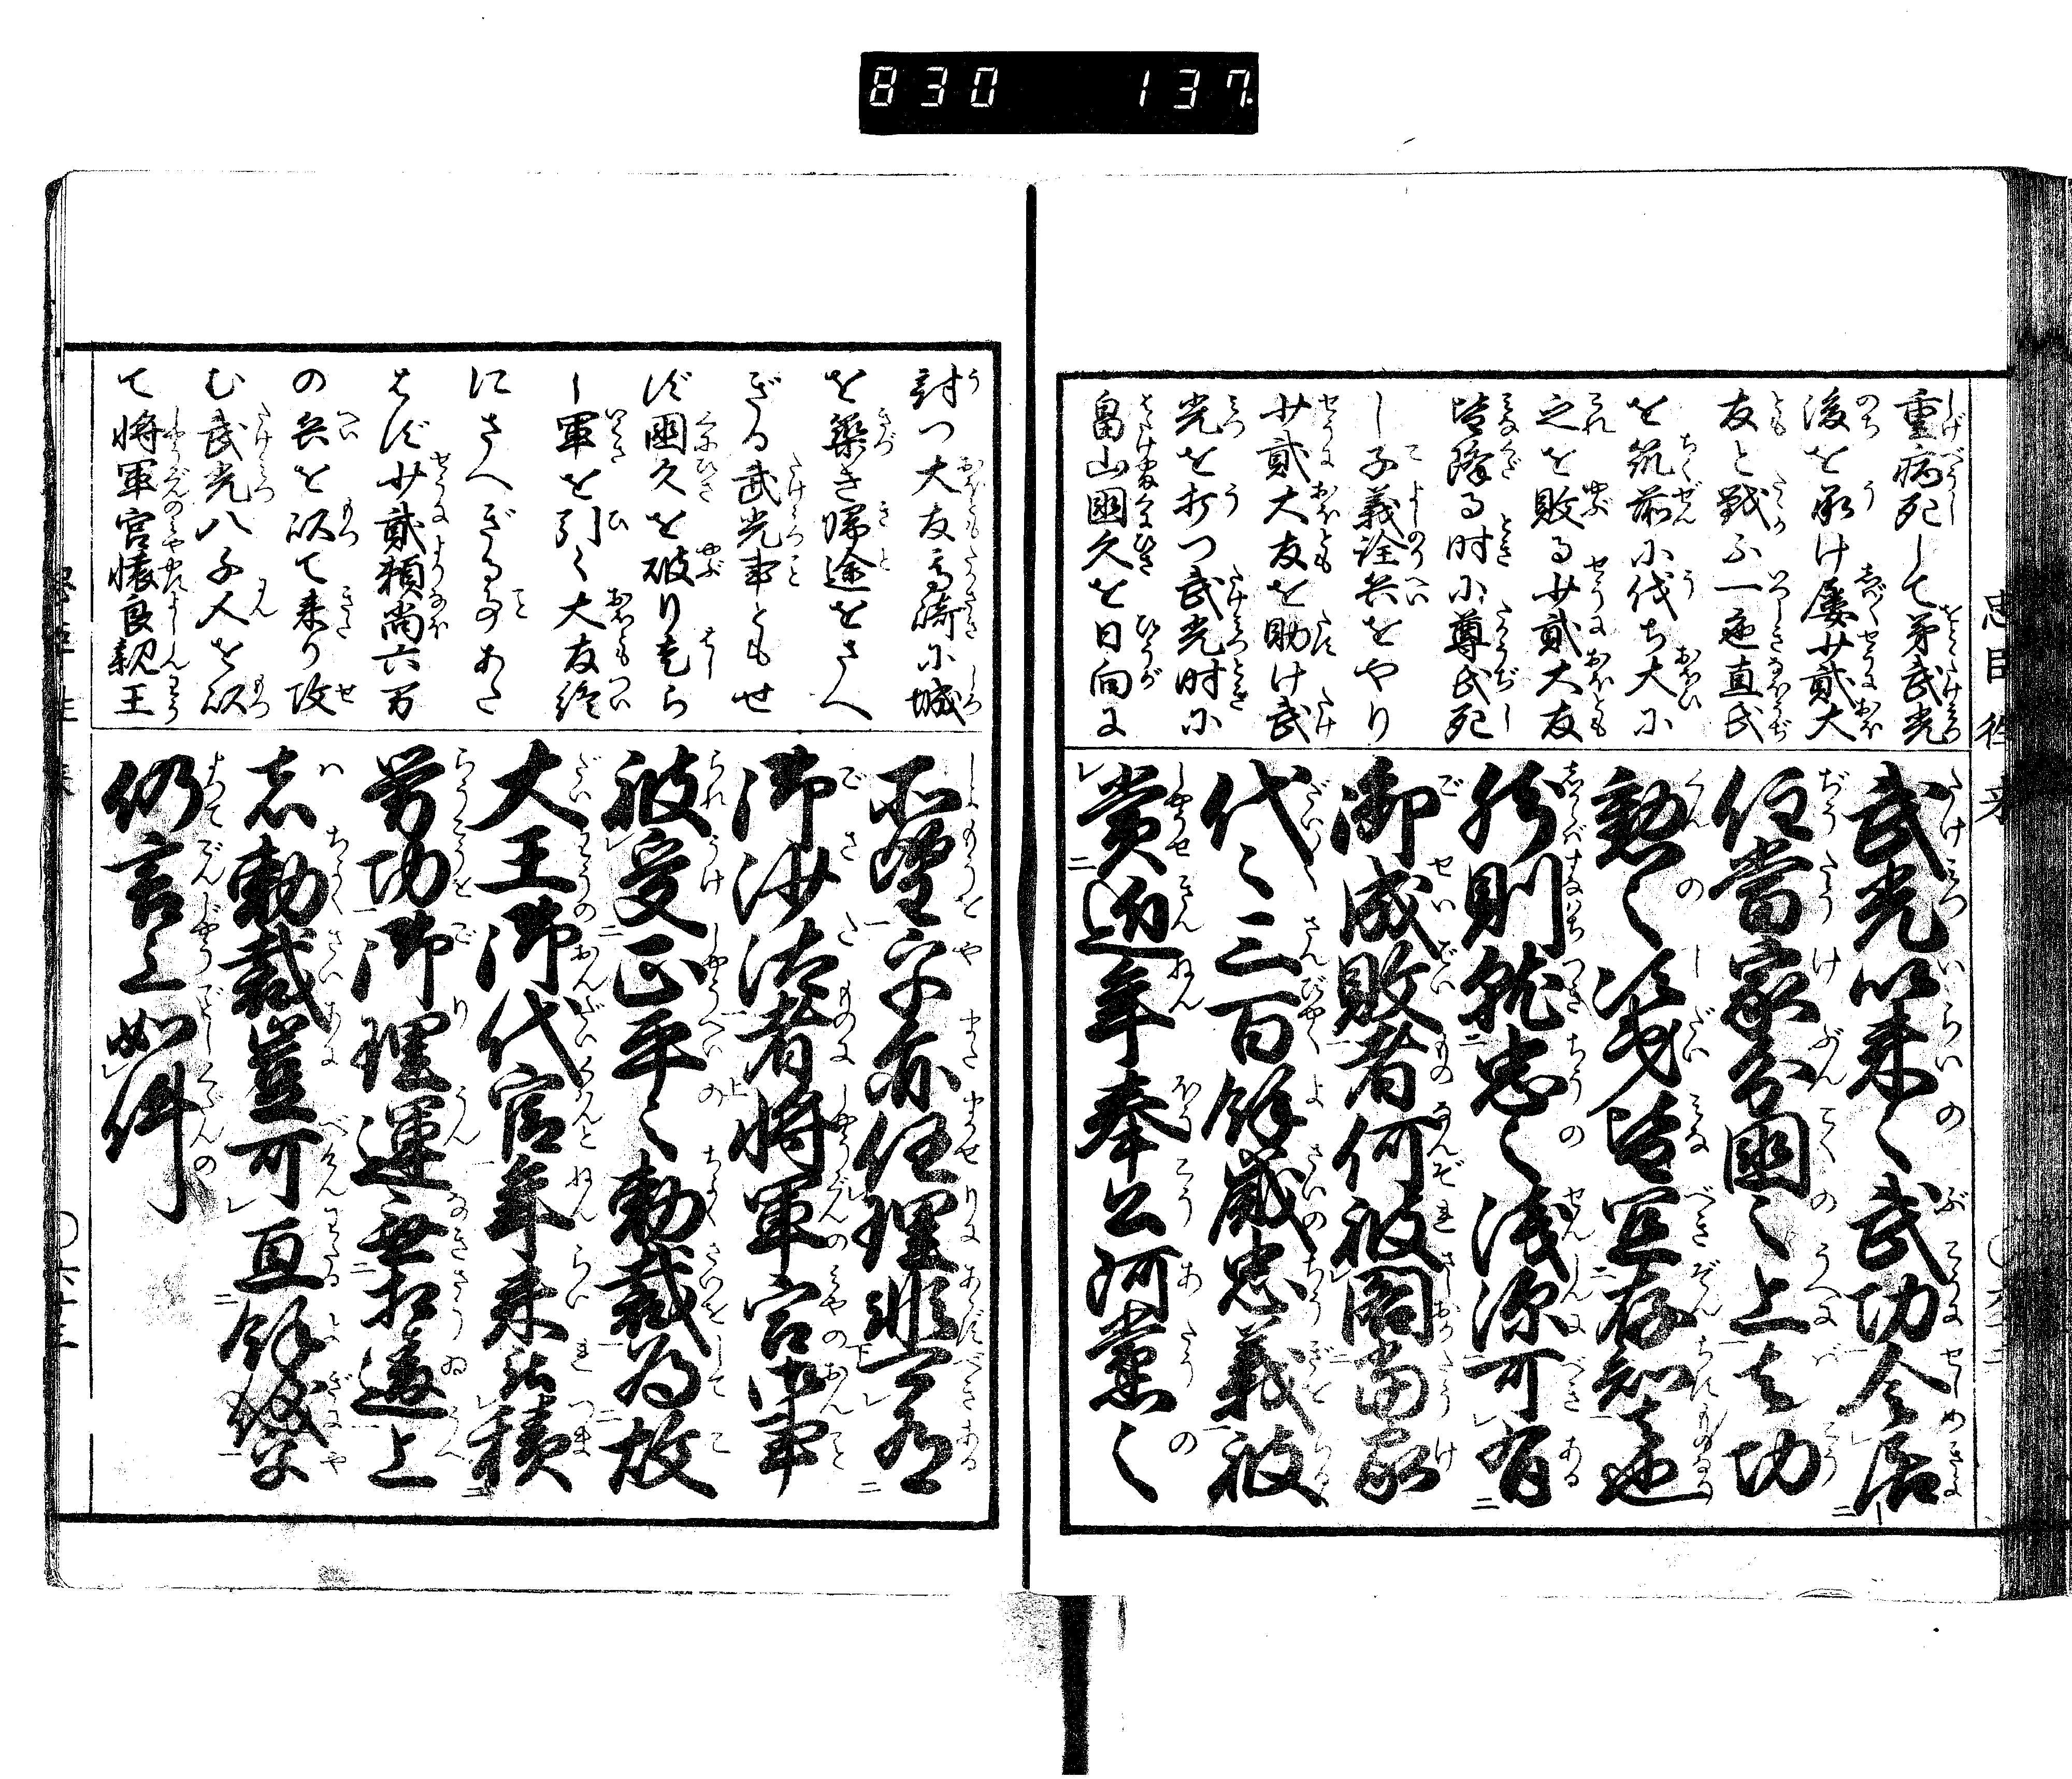 830 137
忠臣往来
重病死して弟武光
後を承け屡少貳大
友と戦ふ一色直氏
を筑前小伐ち大小
之を敗る少貳大友
皆降る時小尊氏死
し子義詮兵をやり
少貳大友を助け武
光を打つ武光時小
畠山國久を日向に
武光以来之武功令居
任當家分國之上者功
勲之次第皆宜存知者也
然則就忠之浅深可有
御成敗者何被閣當家
代々三百餘歳忠義被
賞近年奉公阿黨之
討つ大友高崎小城
を築き帰途をさへ
ぎる武光事ともせ
ず國久を破り走ら
し軍を引く大友終
にさへぎる事あた
はず少貳頼尚六万
の兵を以て来り攻
む武光八千人を以
て将軍宮懐良親王
所望乎亦任理非可有
御沙汰者将軍宮御事
被受正平之勅裁為故
大王御代官年来被積
労功御理運無相違上
者勅裁豈可亘餘儀乎
仍言上如件